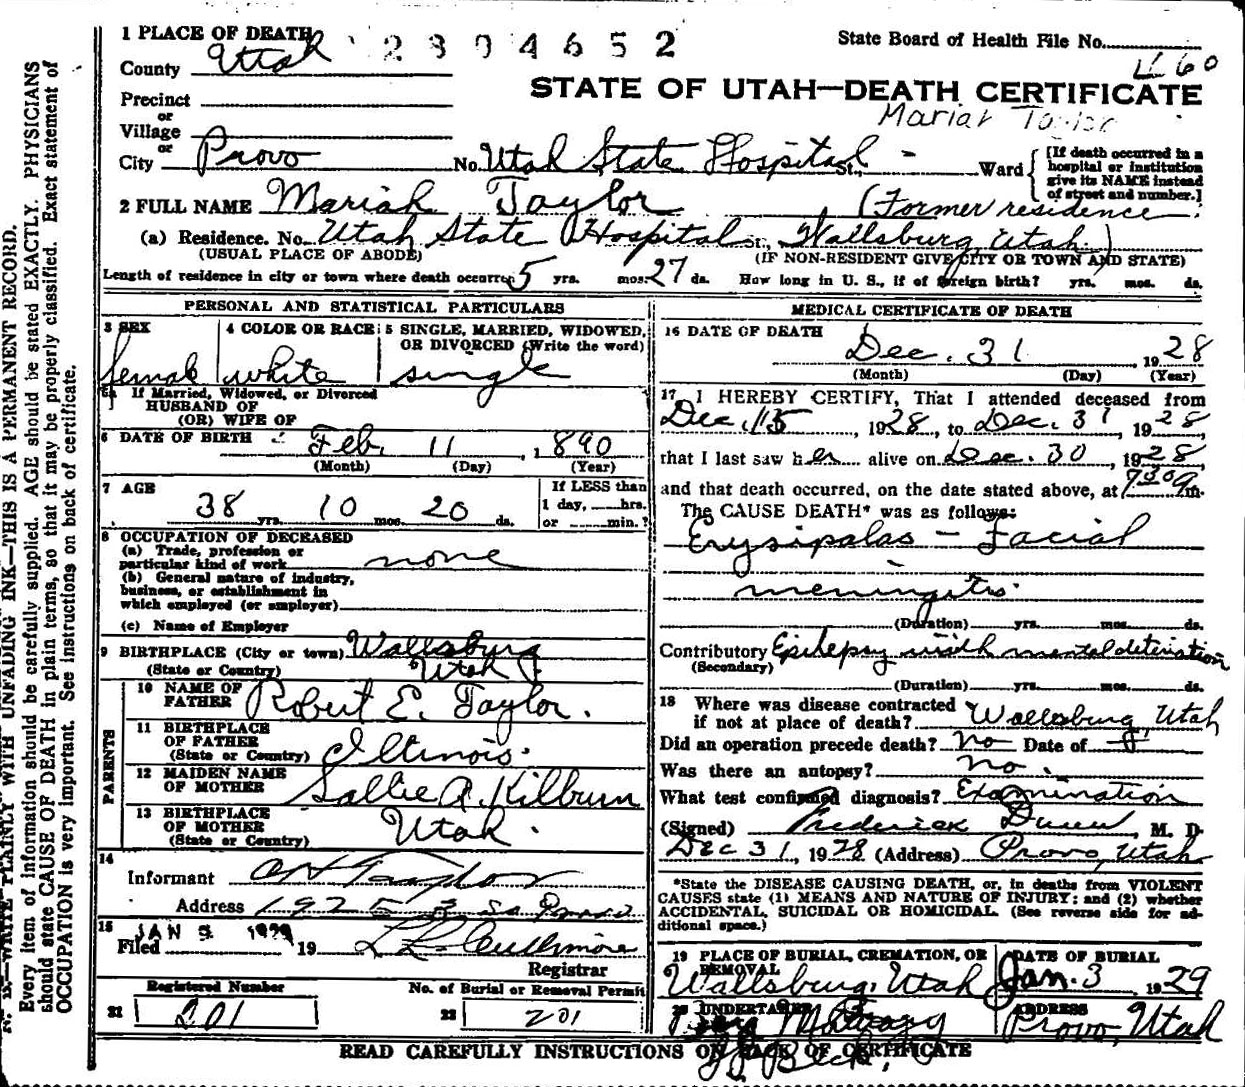 1 PLACE OF DEATH 2304652 State Board of Health File No.
County Utah 460
STATE OF UTAH—DEATH CERTIFICATE
Precinct
or
Village
Mariah Taylor
or
City Provo No. Utah State Hospital St., - Ward [If death occurred in a hospital or institution give its NAME instead of street and number.]
2 FULL NAME Mariah Taylor (Former residence
(a) Residence. No. Utah State Hospital St., Wallsburg, Utah.)
(USUAL PLACE OF ABODE) (IF NON-RESIDENT GIVE CITY OR TOWN AND STATE)
Length of residence in city or town where death occurred 5 yrs. mos. 27 ds. How long in U. S., if of foreign birth? yrs. mos. ds.
PERSONAL AND STATISTICAL PARTICULARS
3 SEX 4 COLOR OR RACE 5 SINGLE, MARRIED, WIDOWED,
OR DIVORCED (Write the word)
female white single
5a If Married, Widowed, or Divorced
HUSBAND OF
(OR) WIFE OF
6 DATE OF BIRTH Feb. 11, 1890
(Month) (Day) (Year)
7 AGE If LESS than
38 yrs. 10 mos. 20 ds. 1 day, hrs.
or min.?
8 OCCUPATION OF DECEASED
(a) Trade, profession or
particular kind of work none
(b) General nature of industry,
business, or establishment in
which employed (or employer)
(c) Name of Employer
9 BIRTHPLACE (City or town) Wallsburg
(State or Country) Utah
PARENTS
10 NAME OF
FATHER Robert E. Taylor.
11 BIRTHPLACE
OF FATHER
(State or Country) Illinois.
12 MAIDEN NAME
OF MOTHER Sallie A. Kilburn
13 BIRTHPLACE
OF MOTHER Utah.
(State or Country)
14
Informant Taylor
Address 192
15 JAN 1929
Filed 19 Cullimore
Registrar
Registered Number No. of Burial or Removal Permit
21 201 22 201
MEDICAL CERTIFICATE OF DEATH
16 DATE OF DEATH
Dec. 31, 1928
(Month) (Day) (Year)
17 I HEREBY CERTIFY, That I attended deceased from
Dec. 15, 1928, to Dec. 31, 1928
that I last saw her alive on Dec. 30, 1928,
and that death occurred, on the date stated above, at m.
The CAUSE DEATH* was as follows:
Erysipalas - Facial
meningitis
(Duration) yrs. mos. ds.
Contributory Epilepsy with mental
(Secondary)
(Duration) yrs. mos. ds.
18 Where was disease contracted
if not at place of death? Wallsburg, Utah
Did an operation precede death? no Date of
Was there an autopsy? no.
What test confirmed diagnosis? Examination
(Signed) Frederick Dunn, M. D.
Dec 31, 1928 (Address) Provo, Utah
*State the DISEASE CAUSING DEATH, or, in deaths from VIOLENT
CAUSES state (1) MEANS AND NATURE OF INJURY: and (2) whether
ACCIDENTAL, SUICIDAL OR HOMICIDAL. (See reverse side for ad-
ditional space.)
19 PLACE OF BURIAL, CREMATION, OR REMOVAL DATE OF BURIAL
Wallsburg, Utah Jan. 3 1929
20 UNDERTAKER ADDRESS
Berg Mortuary Provo, Utah
Beck
READ CAREFULLY INSTRUCTIONS ON BACK OF CERTIFICATE
N. B.—WRITE PLAINLY WITH UNFADING INK—THIS IS A PERMANENT RECORD.
Every item of information should be carefully supplied. AGE should be stated EXACTLY. PHYSICIANS
should state CAUSE OF DEATH in plain terms, so that it may be properly classified. Exact statement of
OCCUPATION is very important. See instructions on back of certificate.